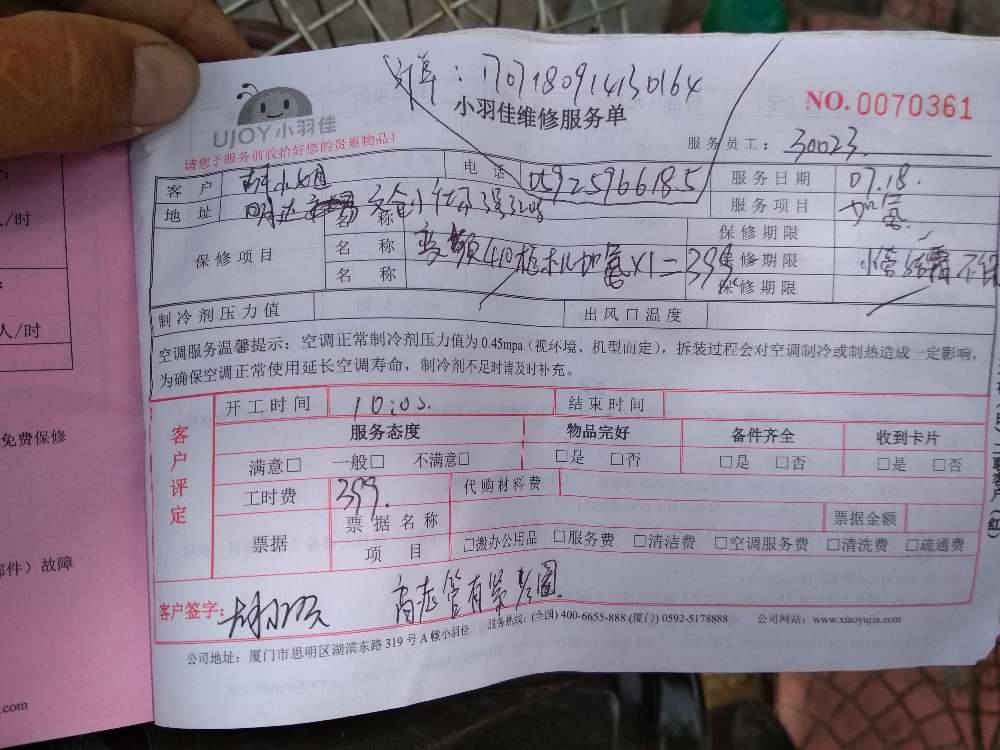 订单：170718091430164
小羽佳维修服务单
NO.0070361
UJOY小羽佳
请您于服务前收拾好您的贵重物品！
服务员工： 30023
客户 小姐 电话 05925966185 服务日期 07.18.
地址 服务项目 加氟
保修项目 名称 保修期限
名称 变频410柜机加氟×1=399 保修期限 水管结霜不保
名称 保修期限
制冷剂压力值 出风口温度
空调服务温馨提示：空调正常制冷剂压力值为0.45mpa（视环境、机型而定），拆装过程会对空调制冷或制热造成一定影响，
为确保空调正常使用延长空调寿命，制冷剂不足时请及时补充。
客户评定
开工时间 10:05. 结束时间
服务态度 物品完好 备件齐全 收到卡片
满意□ 一般□ 不满意□ □是 □否 □是 □否 □是 □否
工时费 399. 代购材料费
票据 票据名称 票据金额
项目 □搬办公用品 □服务费 □清洁费 □空调服务费 □清洗费 □疏通费
客户签字：
服务热线：(全国) 400-6655-888 (厦门) 0592-5178888 公司网站：www.xiaoyujia.com
公司地址：厦门市思明区湖滨东路319号A幢小羽佳
/时
人/时
免费保修
件）故障
.com